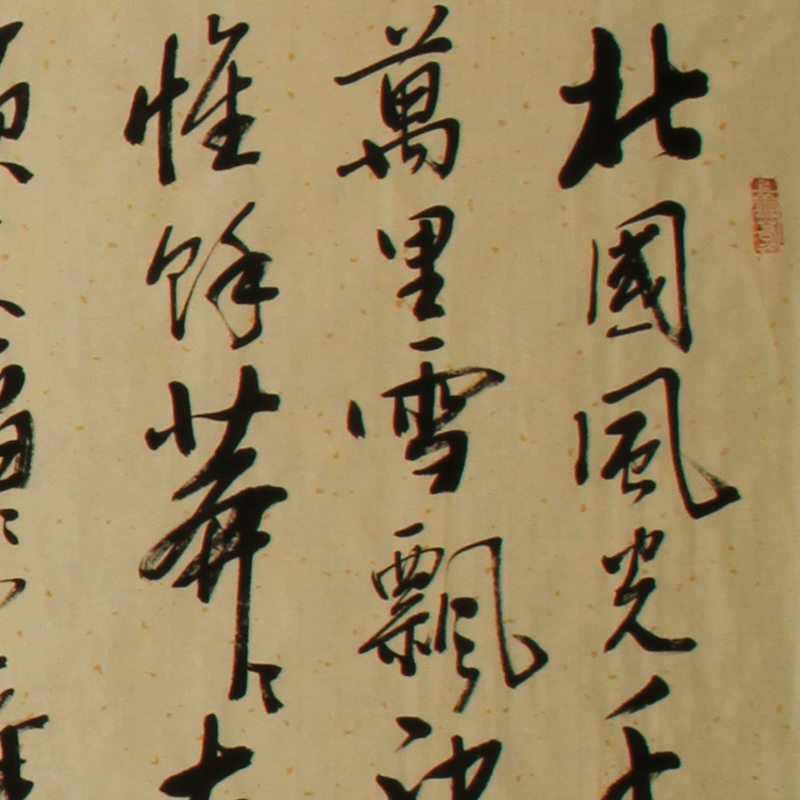 北國風光千
萬里雪飄
惟餘莽〻大